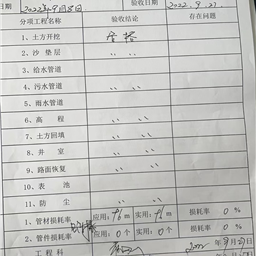 日期 2022年9月8日 验收日期 2022.9.27
分项工程名称 验收结论 存在问题
1、土方开挖 合格
2、沙 垫 层 〃
3、给水管道
4、污水管道 〃
5、雨水管道
6、高 程 〃
7、土方回填 〃
8、井 室 〃
9、路面恢复 〃
10、表 池
11、防 尘 〃
1、管材损耗率 应用: 76 m 实用: 76 m 损耗率 0 %
2、管件损耗率 应用: 0 个 实用: 0 个 损耗率 0 %
工程科 2022 年9月27日